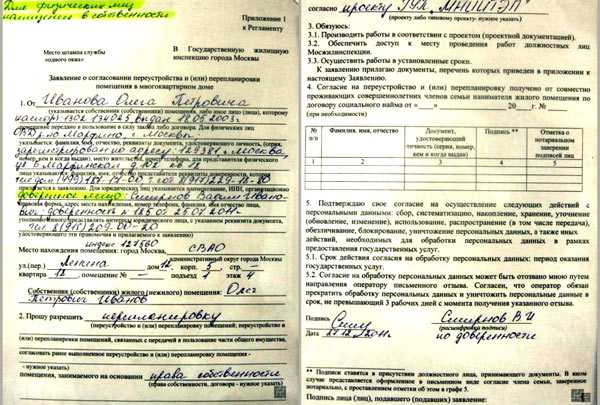 Для физических лиц
помещение в собственности
Приложение 1
к Регламенту
Место штампа службы
«одного окна»
В Государственную жилищную
инспекцию города Москвы
Заявление о согласовании переустройства и (или) перепланировки
помещения в многоквартирном доме
1. От Иванова Олега Петровича
(указывается собственник (собственники), либо иное лицо, которому
паспорт выдан 18.05.2003г.
передано в пользование в силу закона либо договора. Для физических лиц
ОВД р-но Марфино г. Москвы
указывается: фамилия, имя, отчество, реквизиты документа, удостоверяющего личность, (серия,
зарегистрирован по адресу: г. Москва,
номер, кем и когда выдан), место жительства, номер телефона, для представителя физического
лица указывается: фамилия, имя, отчество, реквизиты доверенности, которая
прилагается к заявлению. Для юридических лиц указывается: наименование, ИНН, организационно
доверенное лицо Смирнов Вадим Ивано-
правовая форма, адрес места нахождения, номер телефона, фамилия, имя, отчество
вич доверенность
индекс 127560
Место нахождения помещения: город Москва, СВАО
административный округ города Москвы
ул.(пер.) Ленина дом 12 корп. 5 стр.
квартира 12, помещение № – подъезд этаж 4
Собственник (собственники) жилого (нежилого) помещения: Олег
Петрович Иванов
2. Прошу разрешить перепланировку
(переустройство и (или) перепланировку помещений; переустройство и
(или) перепланировки помещений, связанных с передачей в пользование части общего имущества,
согласовать ранее выполненное переустройство и (или) перепланировку помещения -
нужное указать)
помещения, занимаемого на основании права собственности
(права собственности, договора - нужное указать)
согласно проекту ГУП „МНИИТЭП"
(проекту либо типовому проекту- нужное указать)
3. Обязуюсь:
3.1. Производить работы в соответствии с проектом (проектной документацией).
3.2. Обеспечить доступ к месту проведения работ должностных лиц
Мосжилинспекции.
3.3. Осуществить работы в установленные сроки.
К заявлению прилагаю документы, перечень которых приведен в приложении к
настоящему Заявлению.
4. Согласие на переустройство и (или) перепланировку получено от совместно
проживающих совершеннолетних членов семьи нанимателя жилого помещения по
договору социального найма от « » 20 г. №
(при необходимости)
№ п/п
Фамилия, имя, отчество
Документ, удостоверяющий личность (серия, номер, кем и когда выдан)
Подпись **
Отметка о нотариальном заверении подписей лиц
1 2 3 4 5
5. Подтверждаю свое согласие на осуществление следующих действий с
персональными данными: сбор, систематизацию, накопление, хранение, уточнение
(обновление, изменение), использование, распространение (в том числе передача),
обезличивание, блокирование, уничтожение персональных данных, а также иных
действий, необходимых для обработки персональных данных в рамках
предоставления государственных услуг.
5.1. Срок действия согласия на обработку персональных данных: период оказания
государственной услуги.
5.2. Согласие на обработку персональных данных может быть отозвано мною путем
направления оператору письменного отзыва. Согласен, что оператор обязан
прекратить обработку персональных данных и уничтожить персональные данные в
срок, не превышающий 3 рабочих дней с момента получения указанного отзыва.
Подпись
Смирнов В И
(расшифровка подписи)
Дата
по доверенности
** Подписи ставятся в присутствии должностного лица, принимающего документы. В ином
случае представляется оформленное в письменном виде согласие члена семьи, заверенное
нотариально, с проставлением отметки об этом в графе 5.
Подпись лица (лиц), подавшего (подавших) заявление: